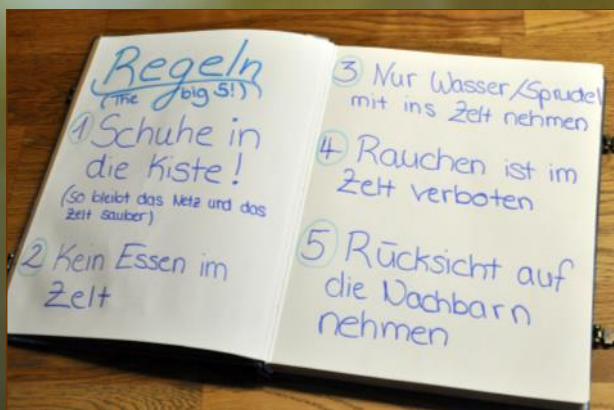 Regeln
(The big 5!)
1 Schuhe in
die Kiste!
(so bleibt das Netz und das
Zelt sauber)
2 Kein Essen im
Zelt
3 Nur Wasser/Sprudel
mit ins Zelt nehmen
4 Rauchen ist im
Zelt verboten
5 Rücksicht auf
die Nachbarn
nehmen